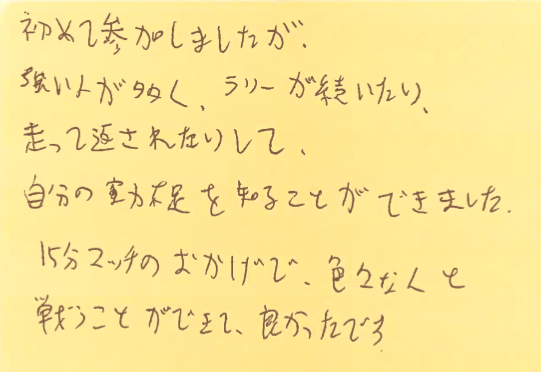 初めて参加しましたが、
強い人が多く、ラリーが続いたり、
走って返されたりして、
自分の実力不足を知ることができました.
15分マッチのおかげで、色々な人と
戦うことができて、良かったです